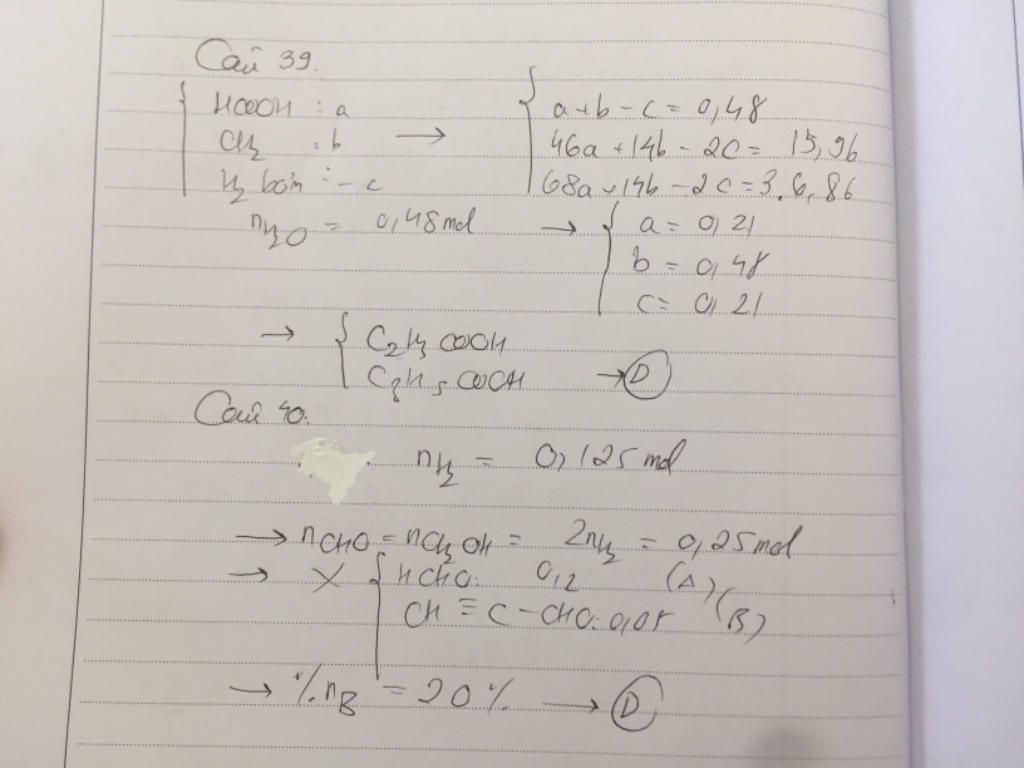 Câu 39.
HCOOH : a → a + b - c = 0,48
CH2 : b 46a + 14b - 2c = 15,96
H2 bơm : -c 68a + 14b - 2c = 3.6,86
nH2O = 0,48 mol → a = 0,21
b = 0,48
c = 0,21
→ C2H3COOH
C2H5COOH → D
Câu 40.
nH2 = 0,125 mol
→ nCHO = nCH2OH = 2nH2 = 0,25 mol
→ X HCHO: 0,2 (A)
CH ≡ C - CHO: 0,05 (B)
→ %nB = 20% → D